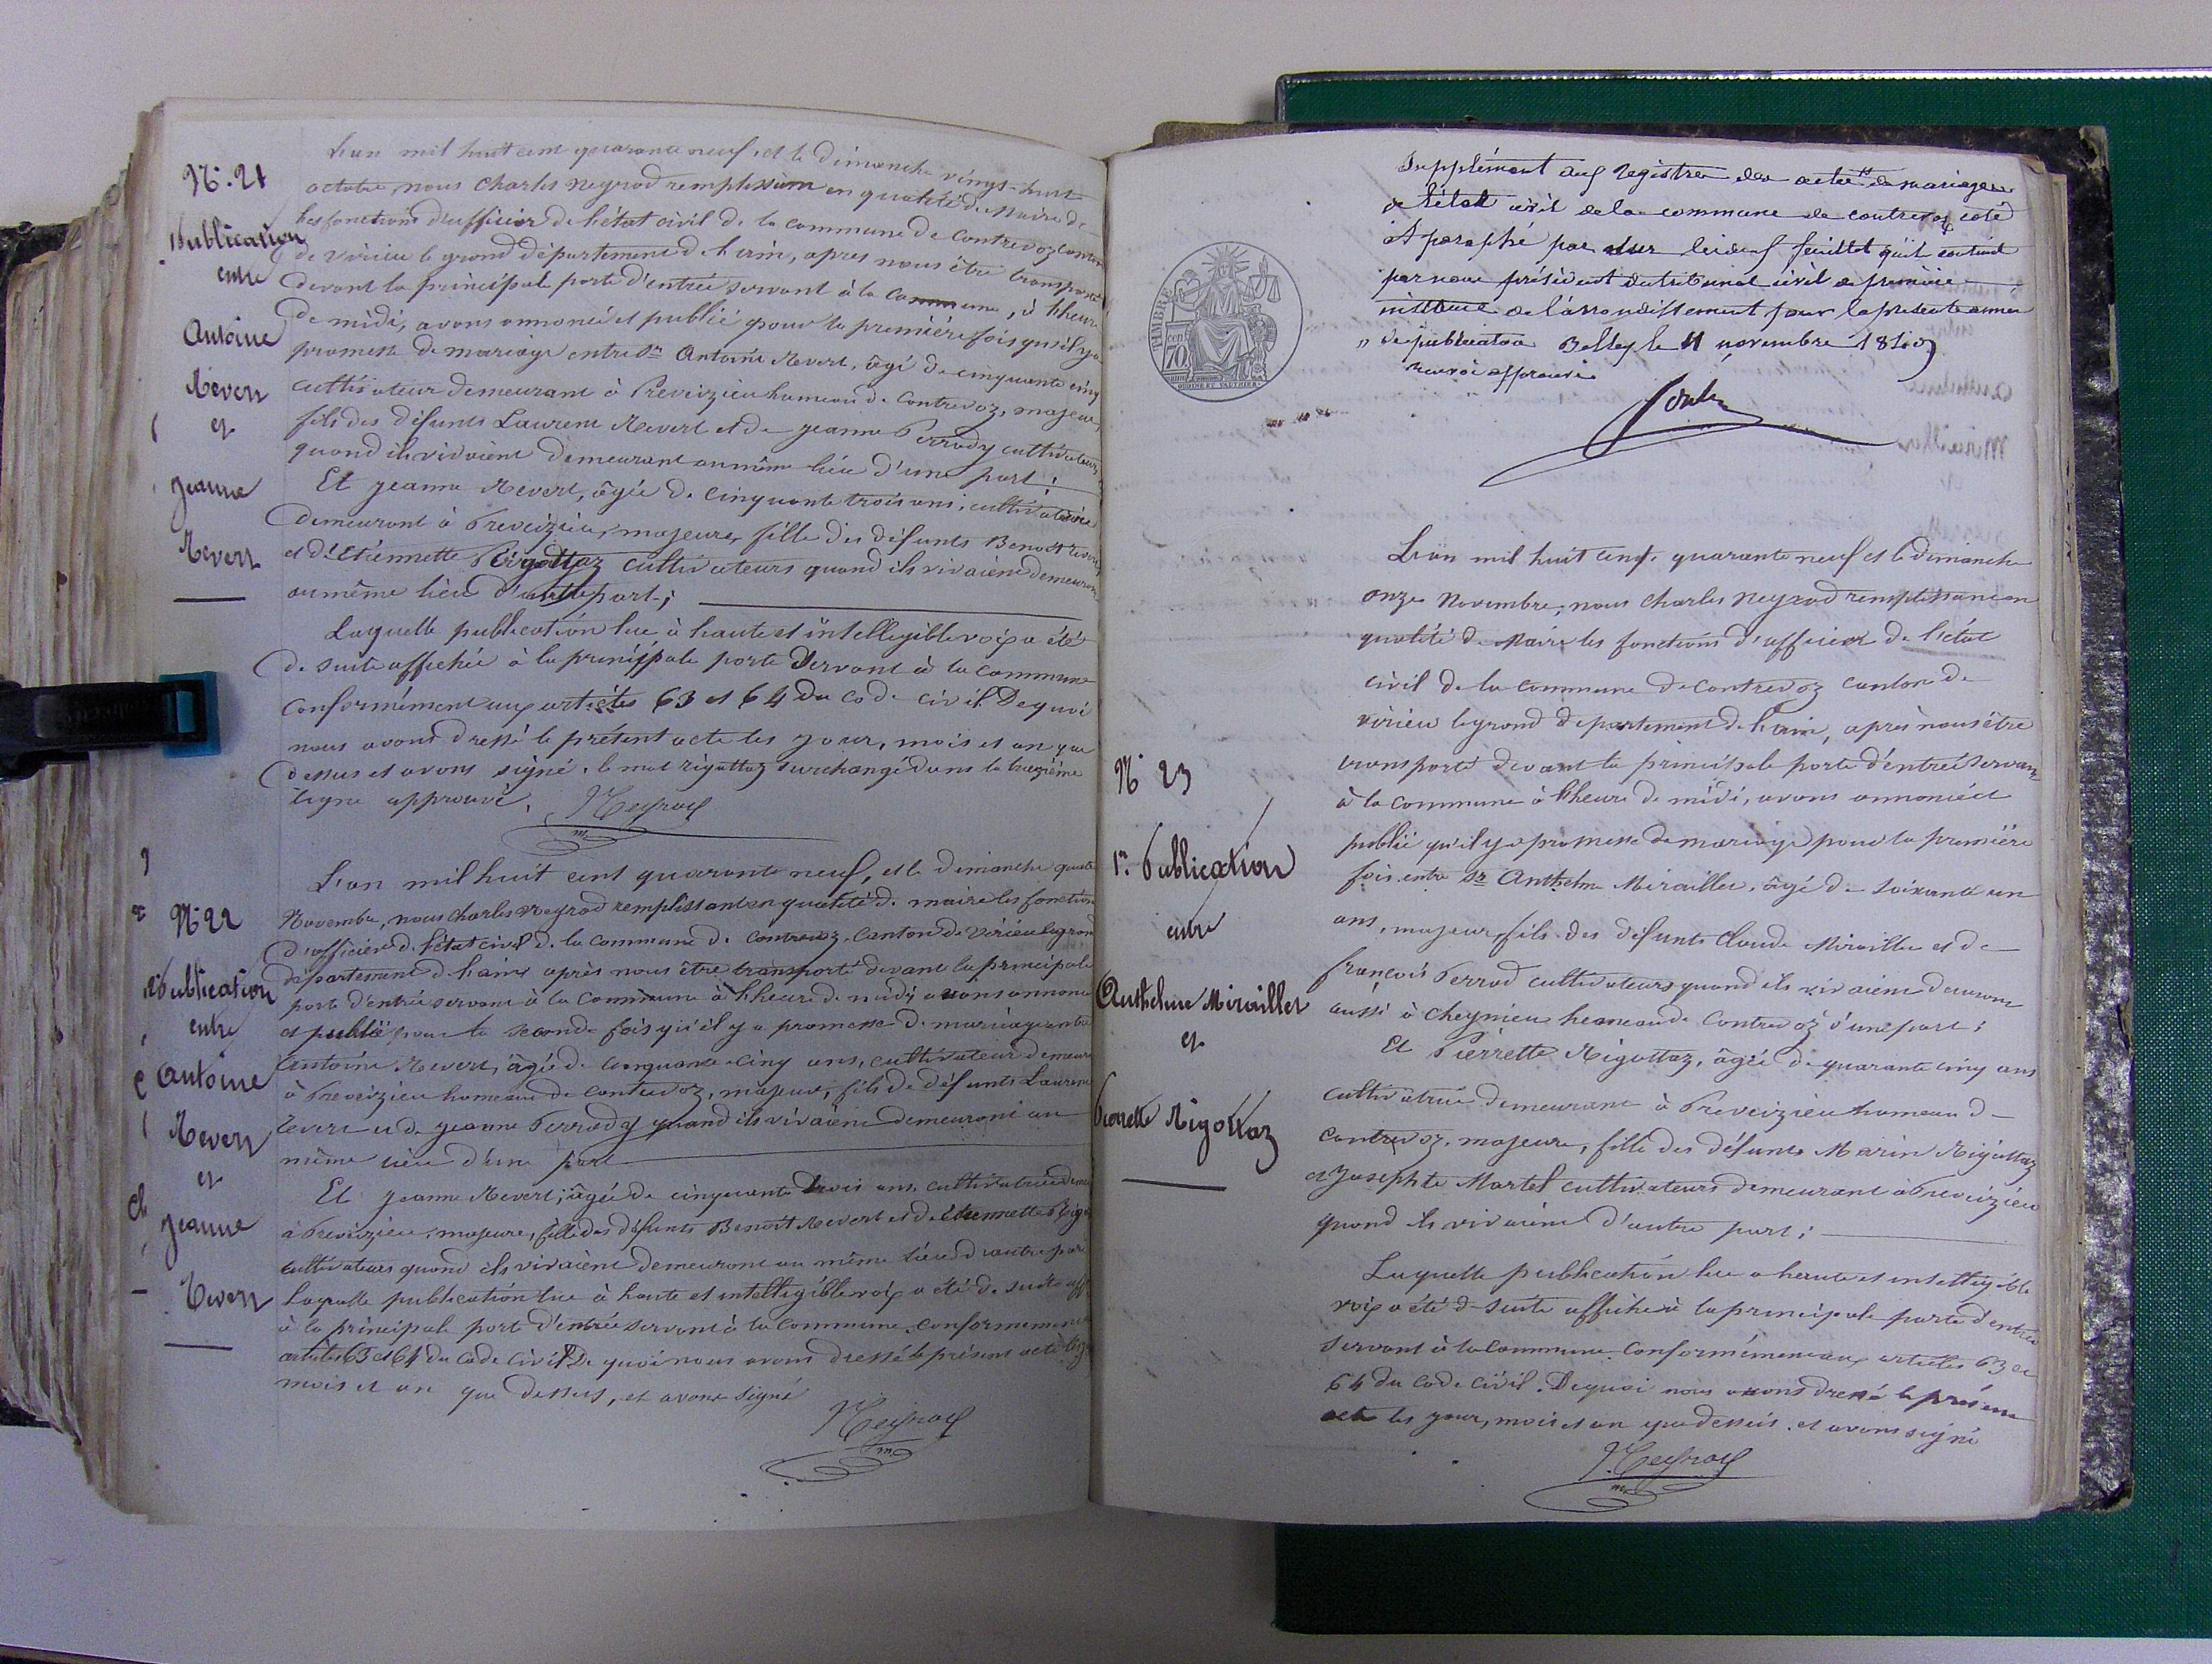 N° 21
Publication
entre
Antoine
Revert
et
Jeanne
Revert
L'an mil huit cent quarante neuf, et le dimanche vingt-huit
octobre, nous Charles Neyrod remplissant en qualité de Maire
les fonctions d'officier de l'état civil de la commune de Contrevoz canton
de virieu le grand département de l'ain, après nous être transporté
devant la principale porte d'entrée servant à la commune, à l'heure
de midi, avons annoncé et publié pour la première fois qu'il y a
promesse de mariage entre Sr Antoine Revert, âgé de cinquante cinq
cultivateur demeurant à Preveizieu hameau de Contrevoz, majeur,
fils des défunts Laurent Revert et de jeanne Perrody cultivateurs
quand ils vivaient demeurant au même lieu d'une part;
Et jeanne Revert, âgée de cinquante trois ans, cultivatrice
demeurant à Preveizieu, majeure, fille des défunts Benoit Revert
et d'Etiennette Rigottaz cultivateurs quand ils vivaient demeurant
au même lieu d'autre part;
Laquelle publication lue à haute et intelligible voix a été
de suite affichée à la principale porte servant à la commune
conformément aux articles 63 et 64 du code civil. De quoi
nous avons dressé le présent acte les jour, mois et an que
dessus et avons signé. le mot rigottaz surchargé dans la treizième
ligne approuvé.
Neyrod
m
N° 22
2e Publication
entre
Antoine
Revert
et
Jeanne
Revert
L'an mil huit cent quarante neuf, et le dimanche quatre
Novembre, nous charles Neyrod remplissant en qualité de maire les fonctions
d'officier de l'état civil de la commune de Contrevoz, canton de Virieu le grand
département de l'ain, après nous être transporté devant la principale
porte d'entrée servant à la commune à l'heure de midi avons annoncé
et publié pour la seconde fois qu'il y a promesse de mariage entre
antoine Revert, âgé de cinquante-cinq ans, cultivateur demeurant
à Preveizieu hameau de contrevoz, majeur, fils de défunts Laurent
revert et de jeanne Perrody quand ils vivaient demeurant au
même lieu d'une part
Et jeanne Revert, âgée de cinquante trois ans, cultivatrice
à Preveizieu, majeure, fille des défunts Benoit Revert et d'etiennette
cultivateurs quand ils vivaient demeurant au même lieu d'autre part
Laquelle publication lue à haute et intelligible voix a été de suite
à la principale porte d'entrée servant à la commune, conformément
articles 63 et 64 du code civil. De quoi nous avons dressé le présent acte les jour
mois et an que dessus, et avons signé
Neyrod
m
Supplément aux Registres des actes de mariages
de l'état civil de la commune de contrevoz coté
et paraphé par les deux feuillet qu'il contient
par nous président du tribunal civil de première
instance de l'arrondissement pour la présente année
" de publication Belley le 11 novembre 1849
renvoi approuvé
TIMBRE
70 cen
N° 23
1re Publication
entre
Anthelme Miraillet
et
Pierrette Rigottaz
L'an mil huit cent quarante neuf et le dimanche
onze Novembre, nous charles Neyrod remplissant en
qualité de Maire les fonctions d'officier de l'état
civil de la commune de contrevoz canton de
virieu le grand département de l'ain, après nous être
transporté devant la principale porte d'entrée servant
à la commune à l'heure de midi, avons annoncé et
publié qu'il y a promesse de mariage pour la première
fois entre Sr Anthelme Miraillet, âgé de soixante un
ans, majeur, fils des défunts Claude Miraillet et de
françoise Perrod cultivateurs quand ils vivaient demeurant
aussi à cheynieu hameau de contrevoz d'une part;
Et Pierrette Rigottaz, âgée de quarante cinq ans
cultivatrice demeurant à Preveizieu hameau de
contrevoz, majeure, fille des défunts Marin Rigottaz
et Josephte Martel cultivateurs demeurant à Preveizieu
quand ils vivaient d'autre part;
Laquelle publication lue a haute et intelligible
voix a été de suite affichée à la principale porte d'entrée
servant à la commune conformément aux articles 63 et
64 du code civil. De quoi nous avons dressé le présent
acte les jour, mois et an que dessus. et avons signé
Neyrod
m